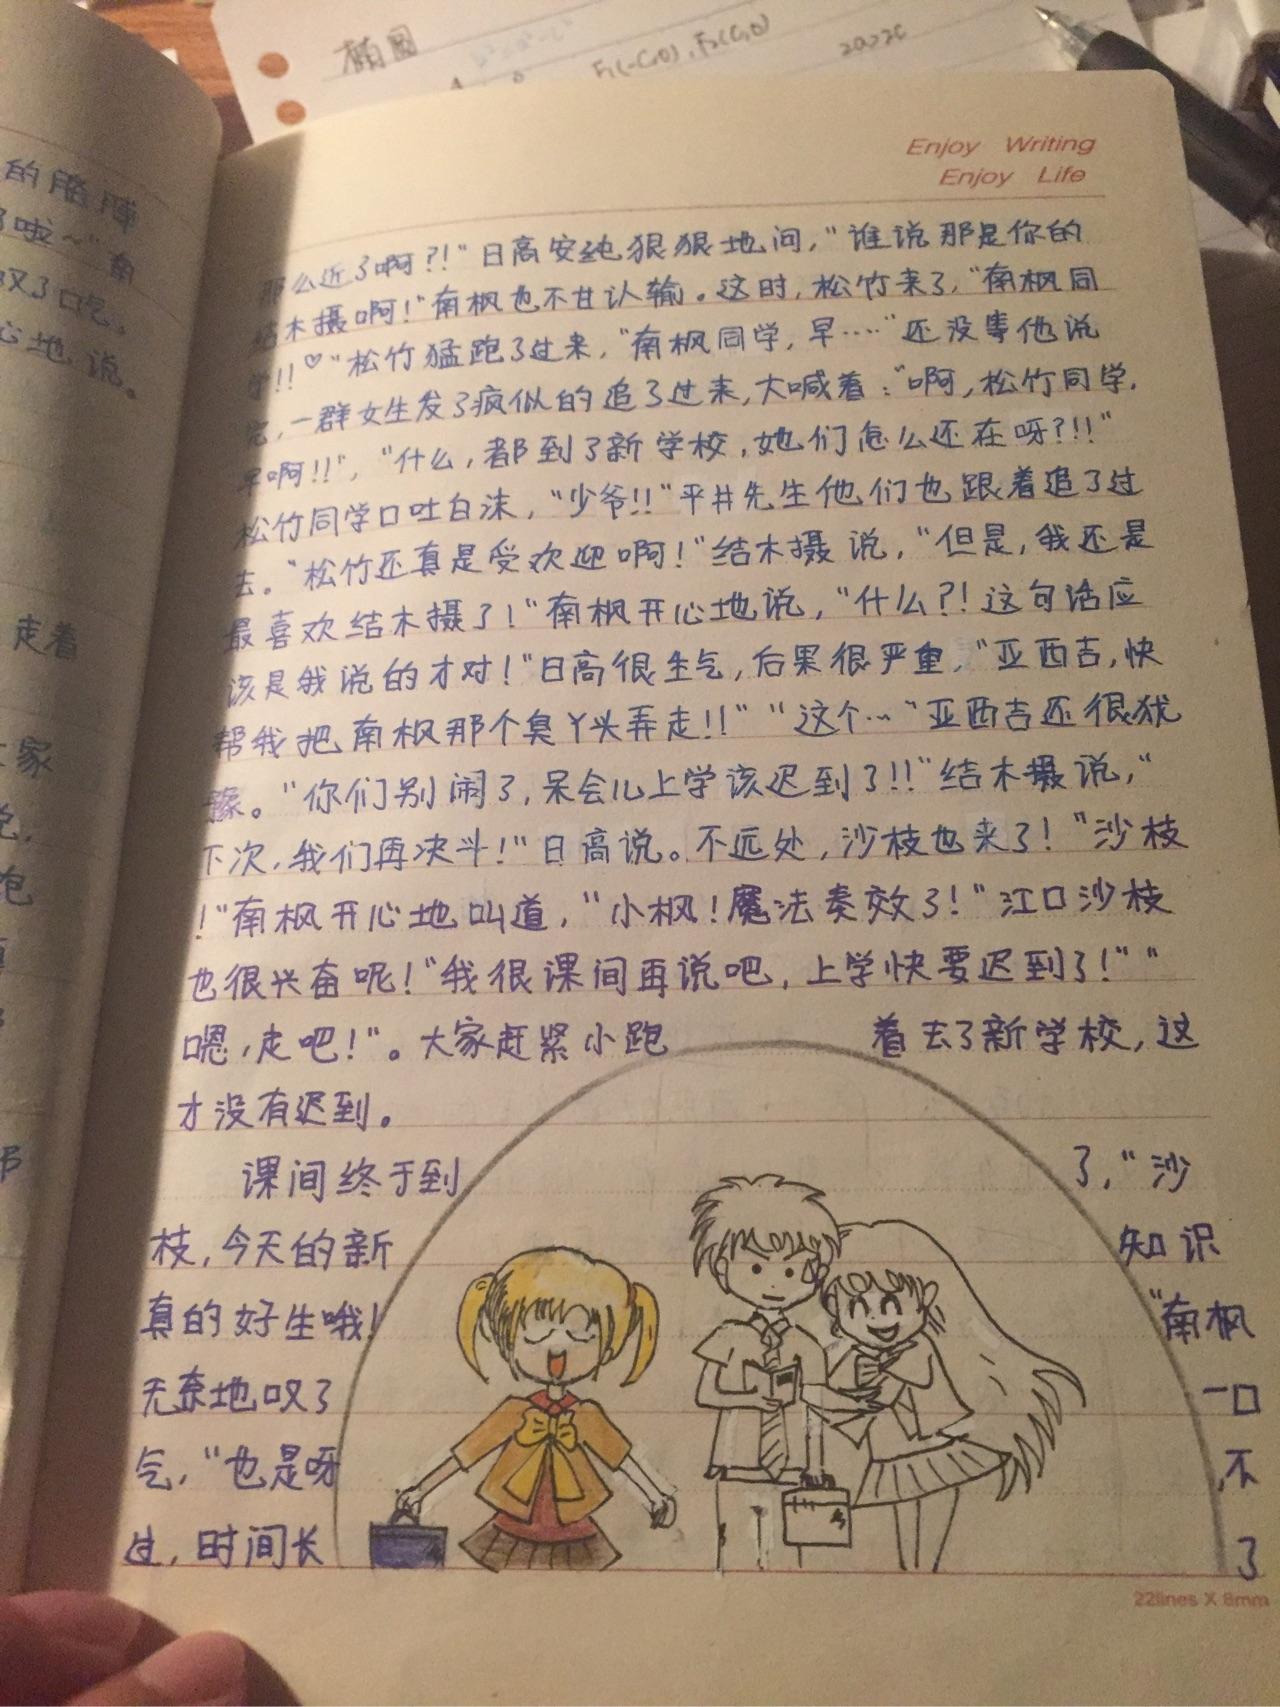 椭圆
F₁(-C,0),F₂(C,0)
2a>2c
Enjoy Writing
Enjoy Life
的
了啦~"南
叹了口气,
心地说。
走着
家
那么近了啊?!"日高安纯狠狠地问,"谁说那是你的
结木摄啊!"南枫也不甘认输。这时,松竹来了,"南枫同
学!!♡"松竹猛跑了过来,"南枫同学,早····"还没等他说
完,一群女生发了疯似的追了过来,大喊着:"啊,松竹同学,
早啊!!","什么,都到了新学校,她们怎么还在呀?!!"
松竹同学口吐白沫,"少爷!!"平井先生他们也跟着追了过
去。"松竹还真是受欢迎啊!"结木摄说,"但是,我还是
最喜欢结木摄了!"南枫开心地说,"什么?!这句话应
该是我说的才对!"日高很生气,后果很严重,"亚西吉,快
帮我把南枫那个臭丫头弄走!!""这个…"亚西吉还很犹
豫。"你们别闹了,呆会儿上学该迟到了!!"结木摄说,"
下次,我们再决斗!"日高说。不远处,沙枝也来了!"沙枝
!"南枫开心地叫道,"小枫!魔法奏效了!"江口沙枝
也很兴奋呢!"我很课间再说吧,上学快要迟到了!""
嗯,走吧!"。大家赶紧小跑 着去了新学校,这
才没有迟到。
课间终于到 了,"沙
枝,今天的新 知识
真的好生哦! "南枫
无奈地叹了 一口
气,"也是呀 ,不
过,时间长 了
22lines X 8mm